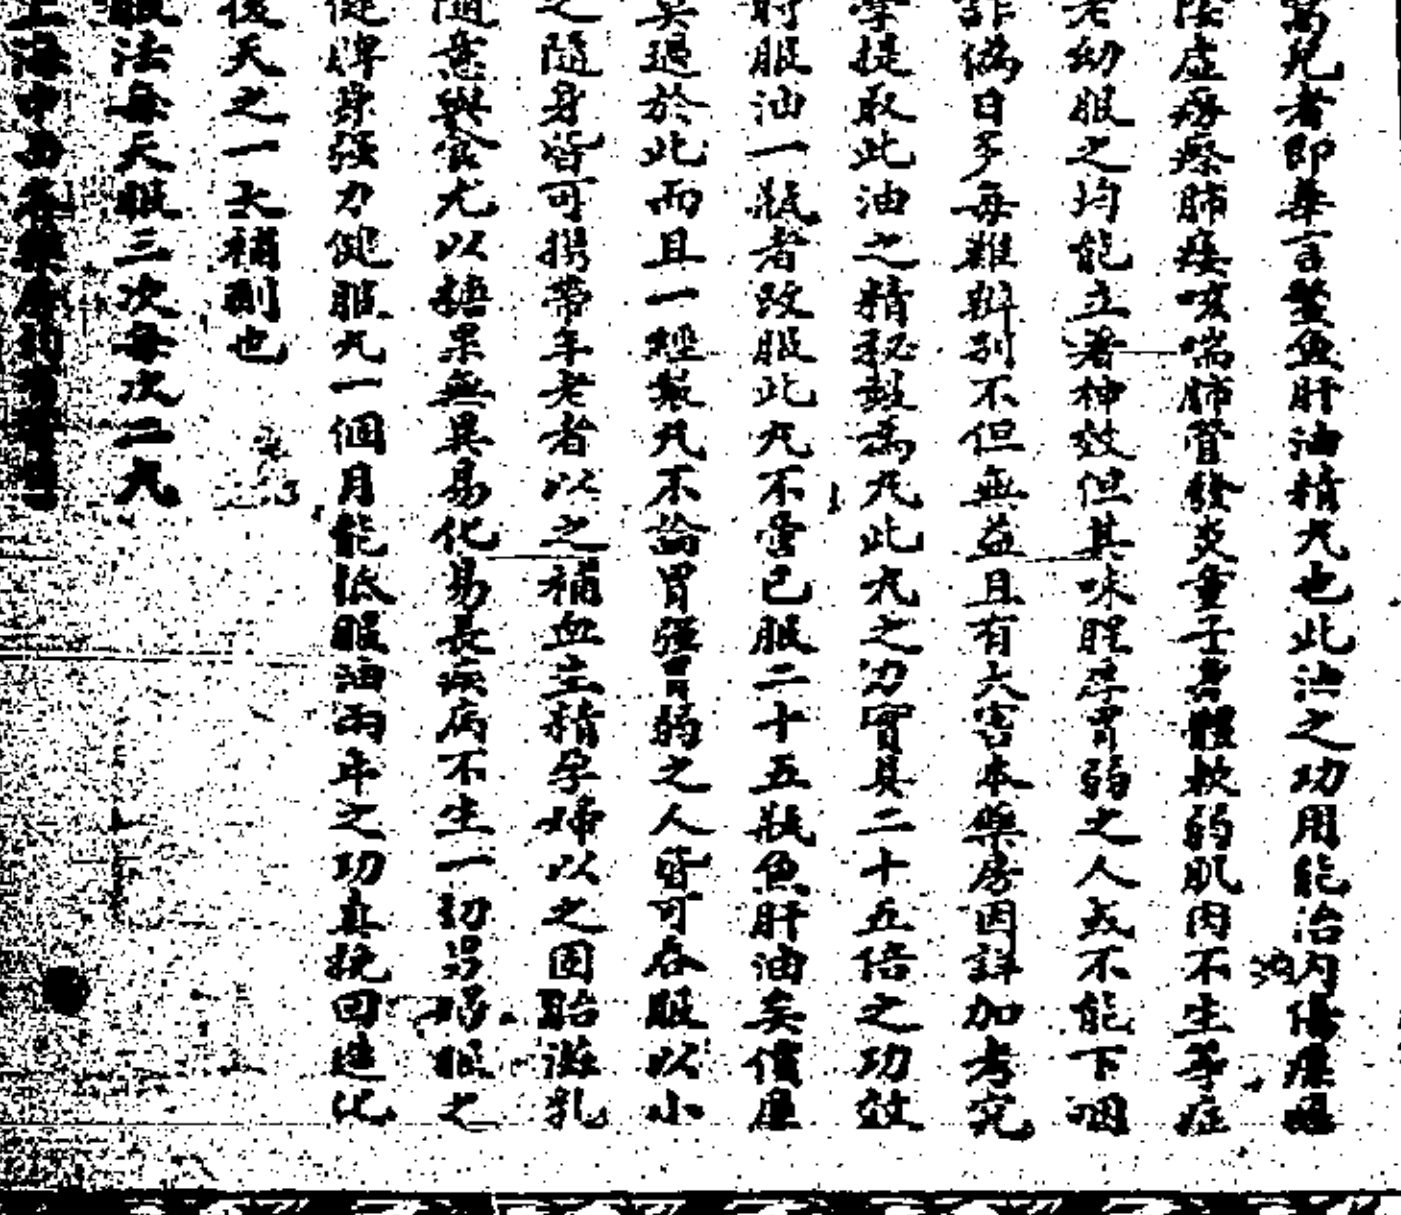 萬兄者即華言鰵魚肝油精丸也此油之功用能治內傷
陰虛癆瘵肺痿咳喘肺管發炎童子身體軟弱肌肉不生等症
老幼服之均能立著神效但其味腥胃弱之人或不能下咽
詐偽日多每難辦别不但無益且有大害本藥房因詳加考究
掌提取此油之精秘製為丸此丸之功實具二十五倍之功效
時服油一瓶者改服此丸不啻已服二十五瓶魚肝油矣價廉
莫過於此而且一經製丸不論胃强胃弱之人皆可吞服以小
之隨身皆可携帶年老者以之補血生精孕婦以之固胎滋乳
隨意與食尤以糖果無異易化易長疾病不生一切服之
健脾身强力健服丸一個月能抵服油兩年之功真挽回造化
後天之一大補劑也
服法每天服三次每次二丸
上海中西大藥房